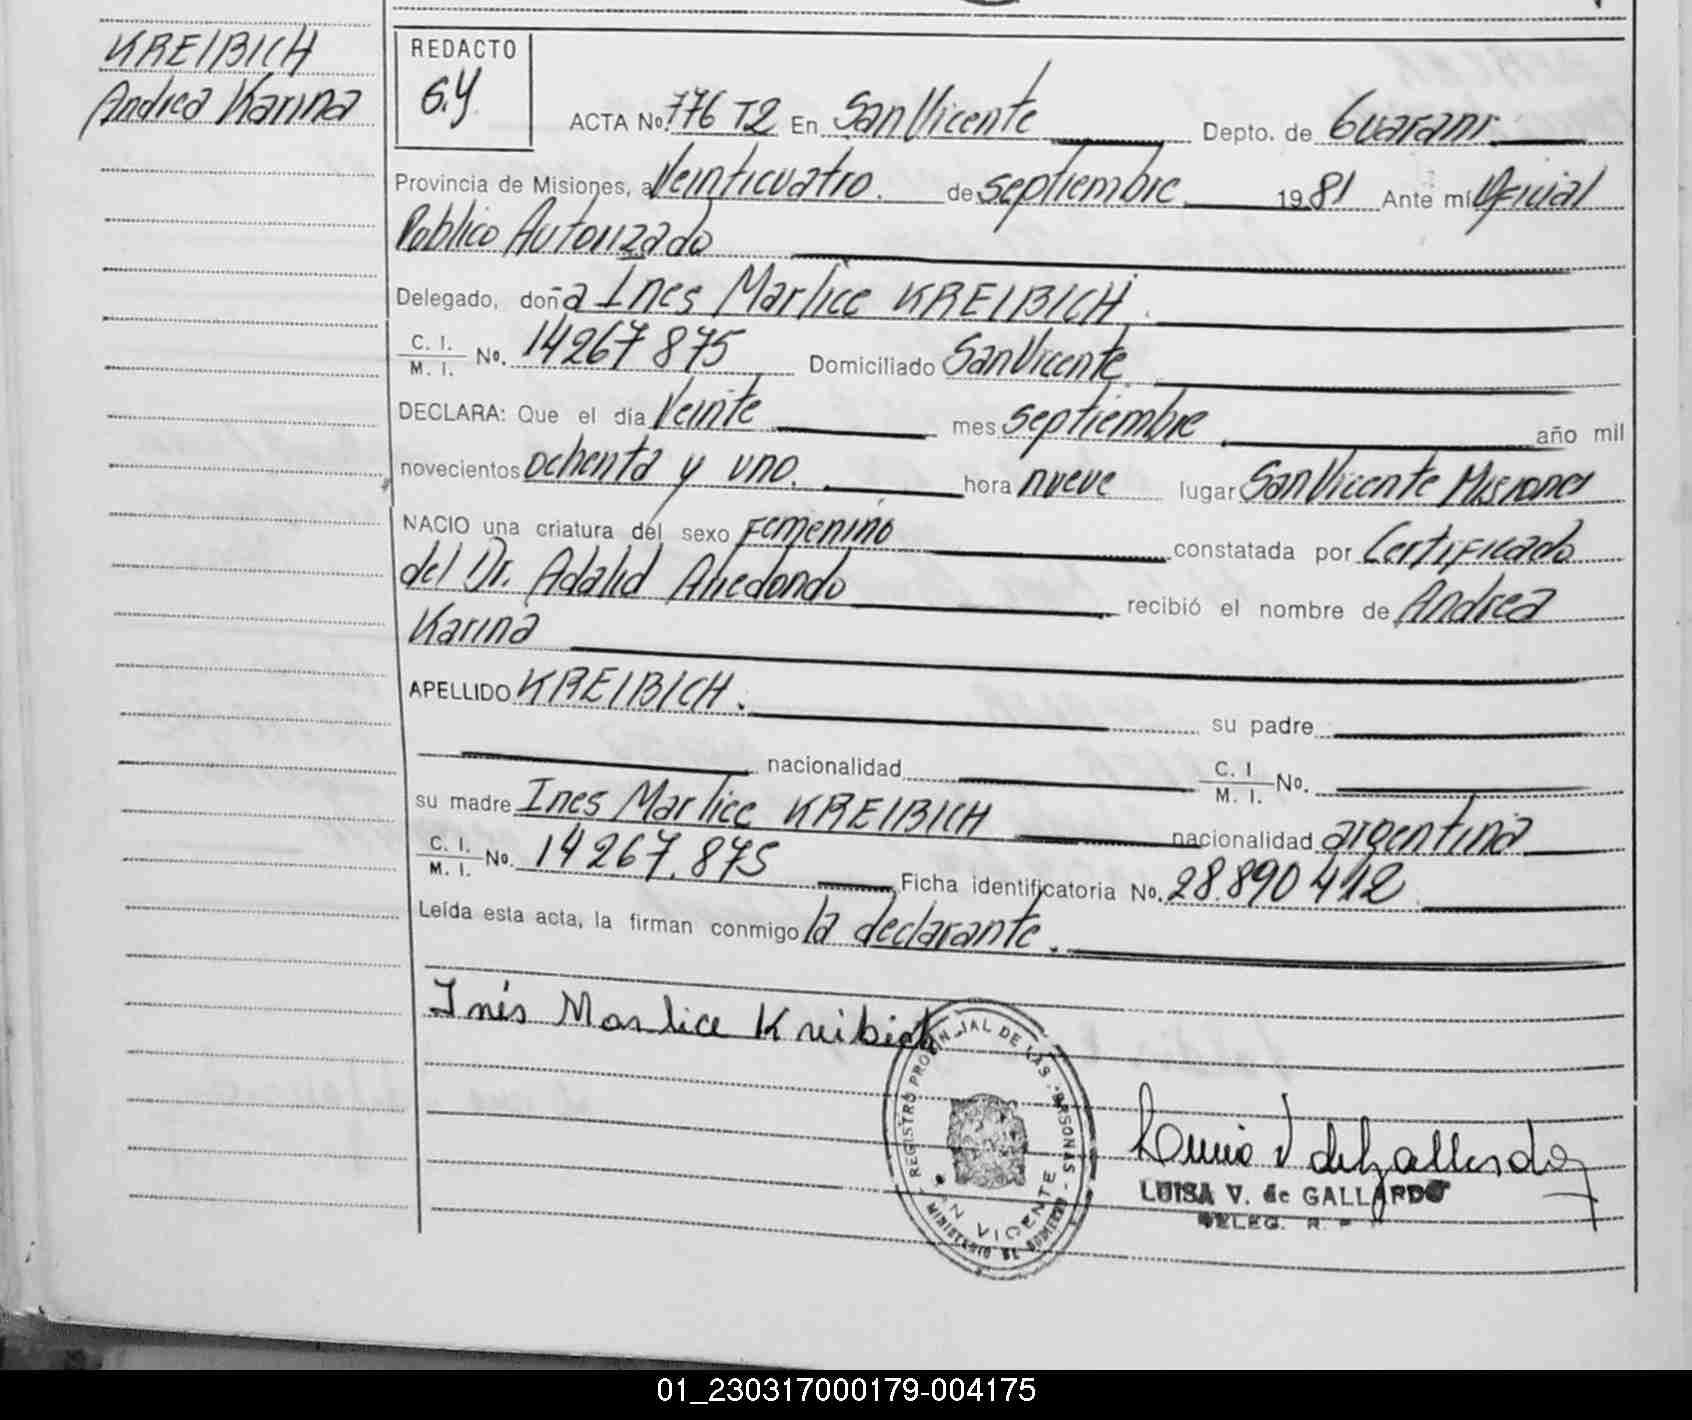 KREIBICH
Andrea Karina
REDACTO
G.Y.
ACTA No. 776 T2 En San Vicente Depto. de Guaraní
Provincia de Misiones, a Veinticuatro. de septiembre 1981 Ante mí Oficial
Publico Autorizado
Delegado, doña Ines Marlice KREIBICH
C. I.
M. I. No. 14267875 Domiciliado San Vicente
DECLARA: Que el día Veinte mes septiembre año mil
novecientos ochenta y uno. hora nueve lugar San Vicente Misiones
NACIO una criatura del sexo Femenino constatada por Certificado
del Dr. Adalid Arredondo recibió el nombre de Andrea
Karina
APELLIDO KREIBICH. su padre
nacionalidad C. I.
M. I. No.
su madre Ines Marlice KREIBICH nacionalidad argentina
C. I.
M. I. No. 14267.875 Ficha identificatoria No. 28.890412
Leída esta acta, la firman conmigo la declarante.
Inés Marlice Kreibich
REGISTRO PROVINCIAL DE LAS PERSONAS
SAN VICENTE
MINISTERIO DE GOBIERNO
LUISA V. de GALLARDO
DELEG. R. P.
01_230317000179-004175